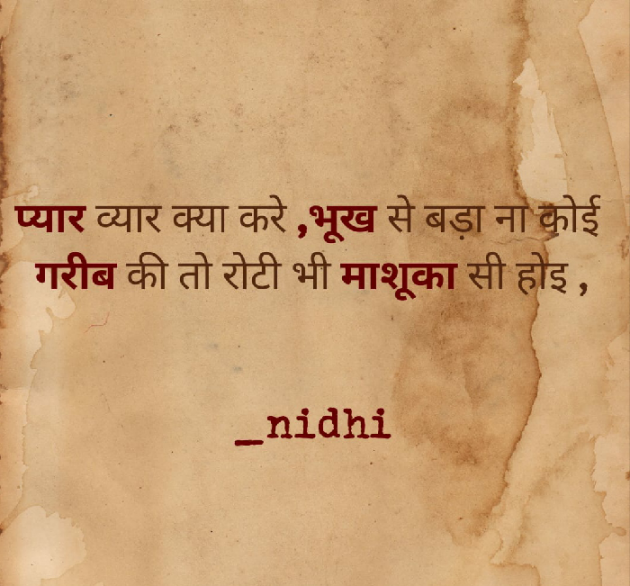 प्यार व्यार क्या करे ,भूख से बड़ा ना कोई
गरीब की तो रोटी भी माशूका सी होइ ,
_nidhi